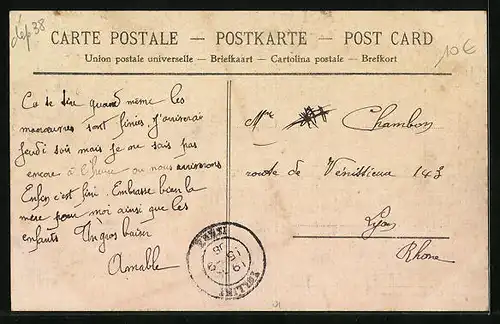 dép 38
10€
CARTE POSTALE — POSTKARTE — POST CARD
Union postale universelle — Briefkaart — Cartolina postale — Brefkort
quand même les
manœuvres sont finies. J'arriverai
jeudi soir mais je ne sais pas
encore à l'heure ou nous arriverons
Enfin c'est fini. Embrasse bien la
mère pour moi ainsi que les
enfants Un gros baiser
Amable
Mme Chambon
route de Vénissieux 143
Lyon
Rhône